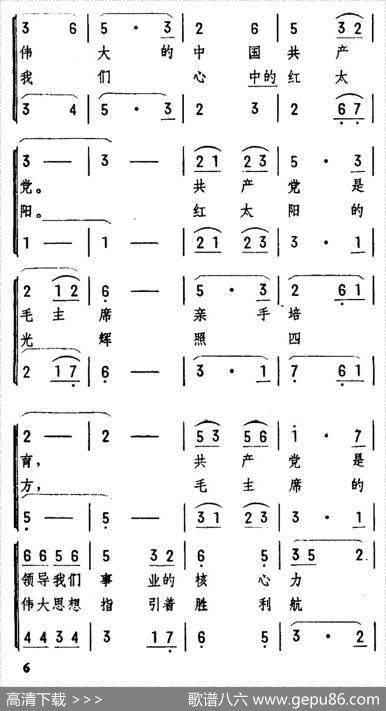 3 6 5 · 3 2 6 5 3 2
伟 大 的 中 国 共 产
我 们 心 中的 红 太
3 4 5 · 3 2 3 2 6 7
3 — — 3 — — 2 1 2 3 5 · 3
党。 共 产 党 是
阳。 红 太 阳 的
1 — — 1 — — 2 1 2 3 3 · 1
2 1 2 6 — — 5 · 3 2 6 1
毛 主 席 亲 手 培
光 辉 照 四
2 1 7 6 — — 3 · 1 7 6 1
2 — — 2 — — 5 3 5 6 1 · 7
育, 共 产 党 是
方, 毛 主 席 的
5 — — 5 — — 3 1 2 3 3 · 1
6 6 5 6 5 3 2 6 5 3 5 2
领导我们 事 业的 核 心 力
伟大思想 指 引着 胜 利 航
4 4 3 4 3 1 7 6 5 3 · 2
6
高清下载 >>> 歌谱八六 www.gepu86.com